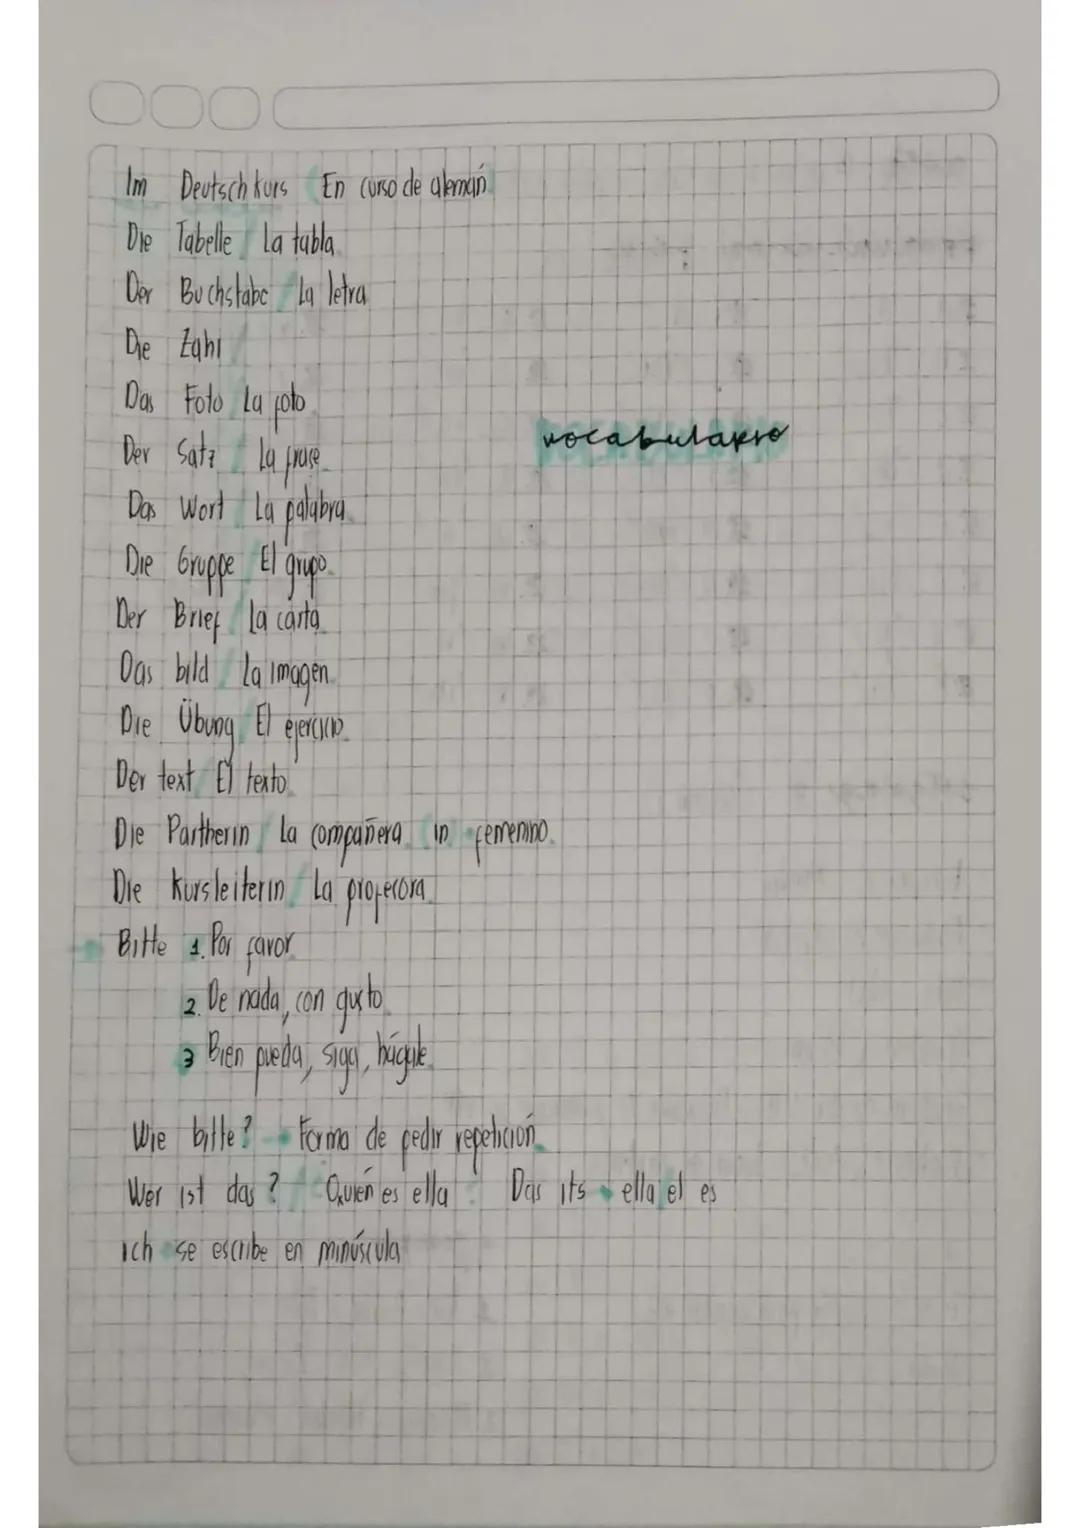 Im Deutschkurs ( En curso de alemán )
Die Tabelle / La tabla
Der Buchstabe / La letra
Die Zahl /
Das Foto La foto
Der Satz / La frase
vocabulario
Das Wort / La palabra
Die Gruppe / El grupo
Der Brief / La carta
Das bild / La imagen
Die Übung / El ejercicio
Der text / El texto
Die Partherin / La compañera (in) → femenino
Die Kursleiterin / La profecora
→ Bitte 1. Por favor
2. De nada, con gusto
3 Bien pueda, siga, hágale
Wie bitte? → Forma de pedir repetición
Wer ist das? / Quién es ella? Das its → ella/el es
ich → se escribe en minúscula